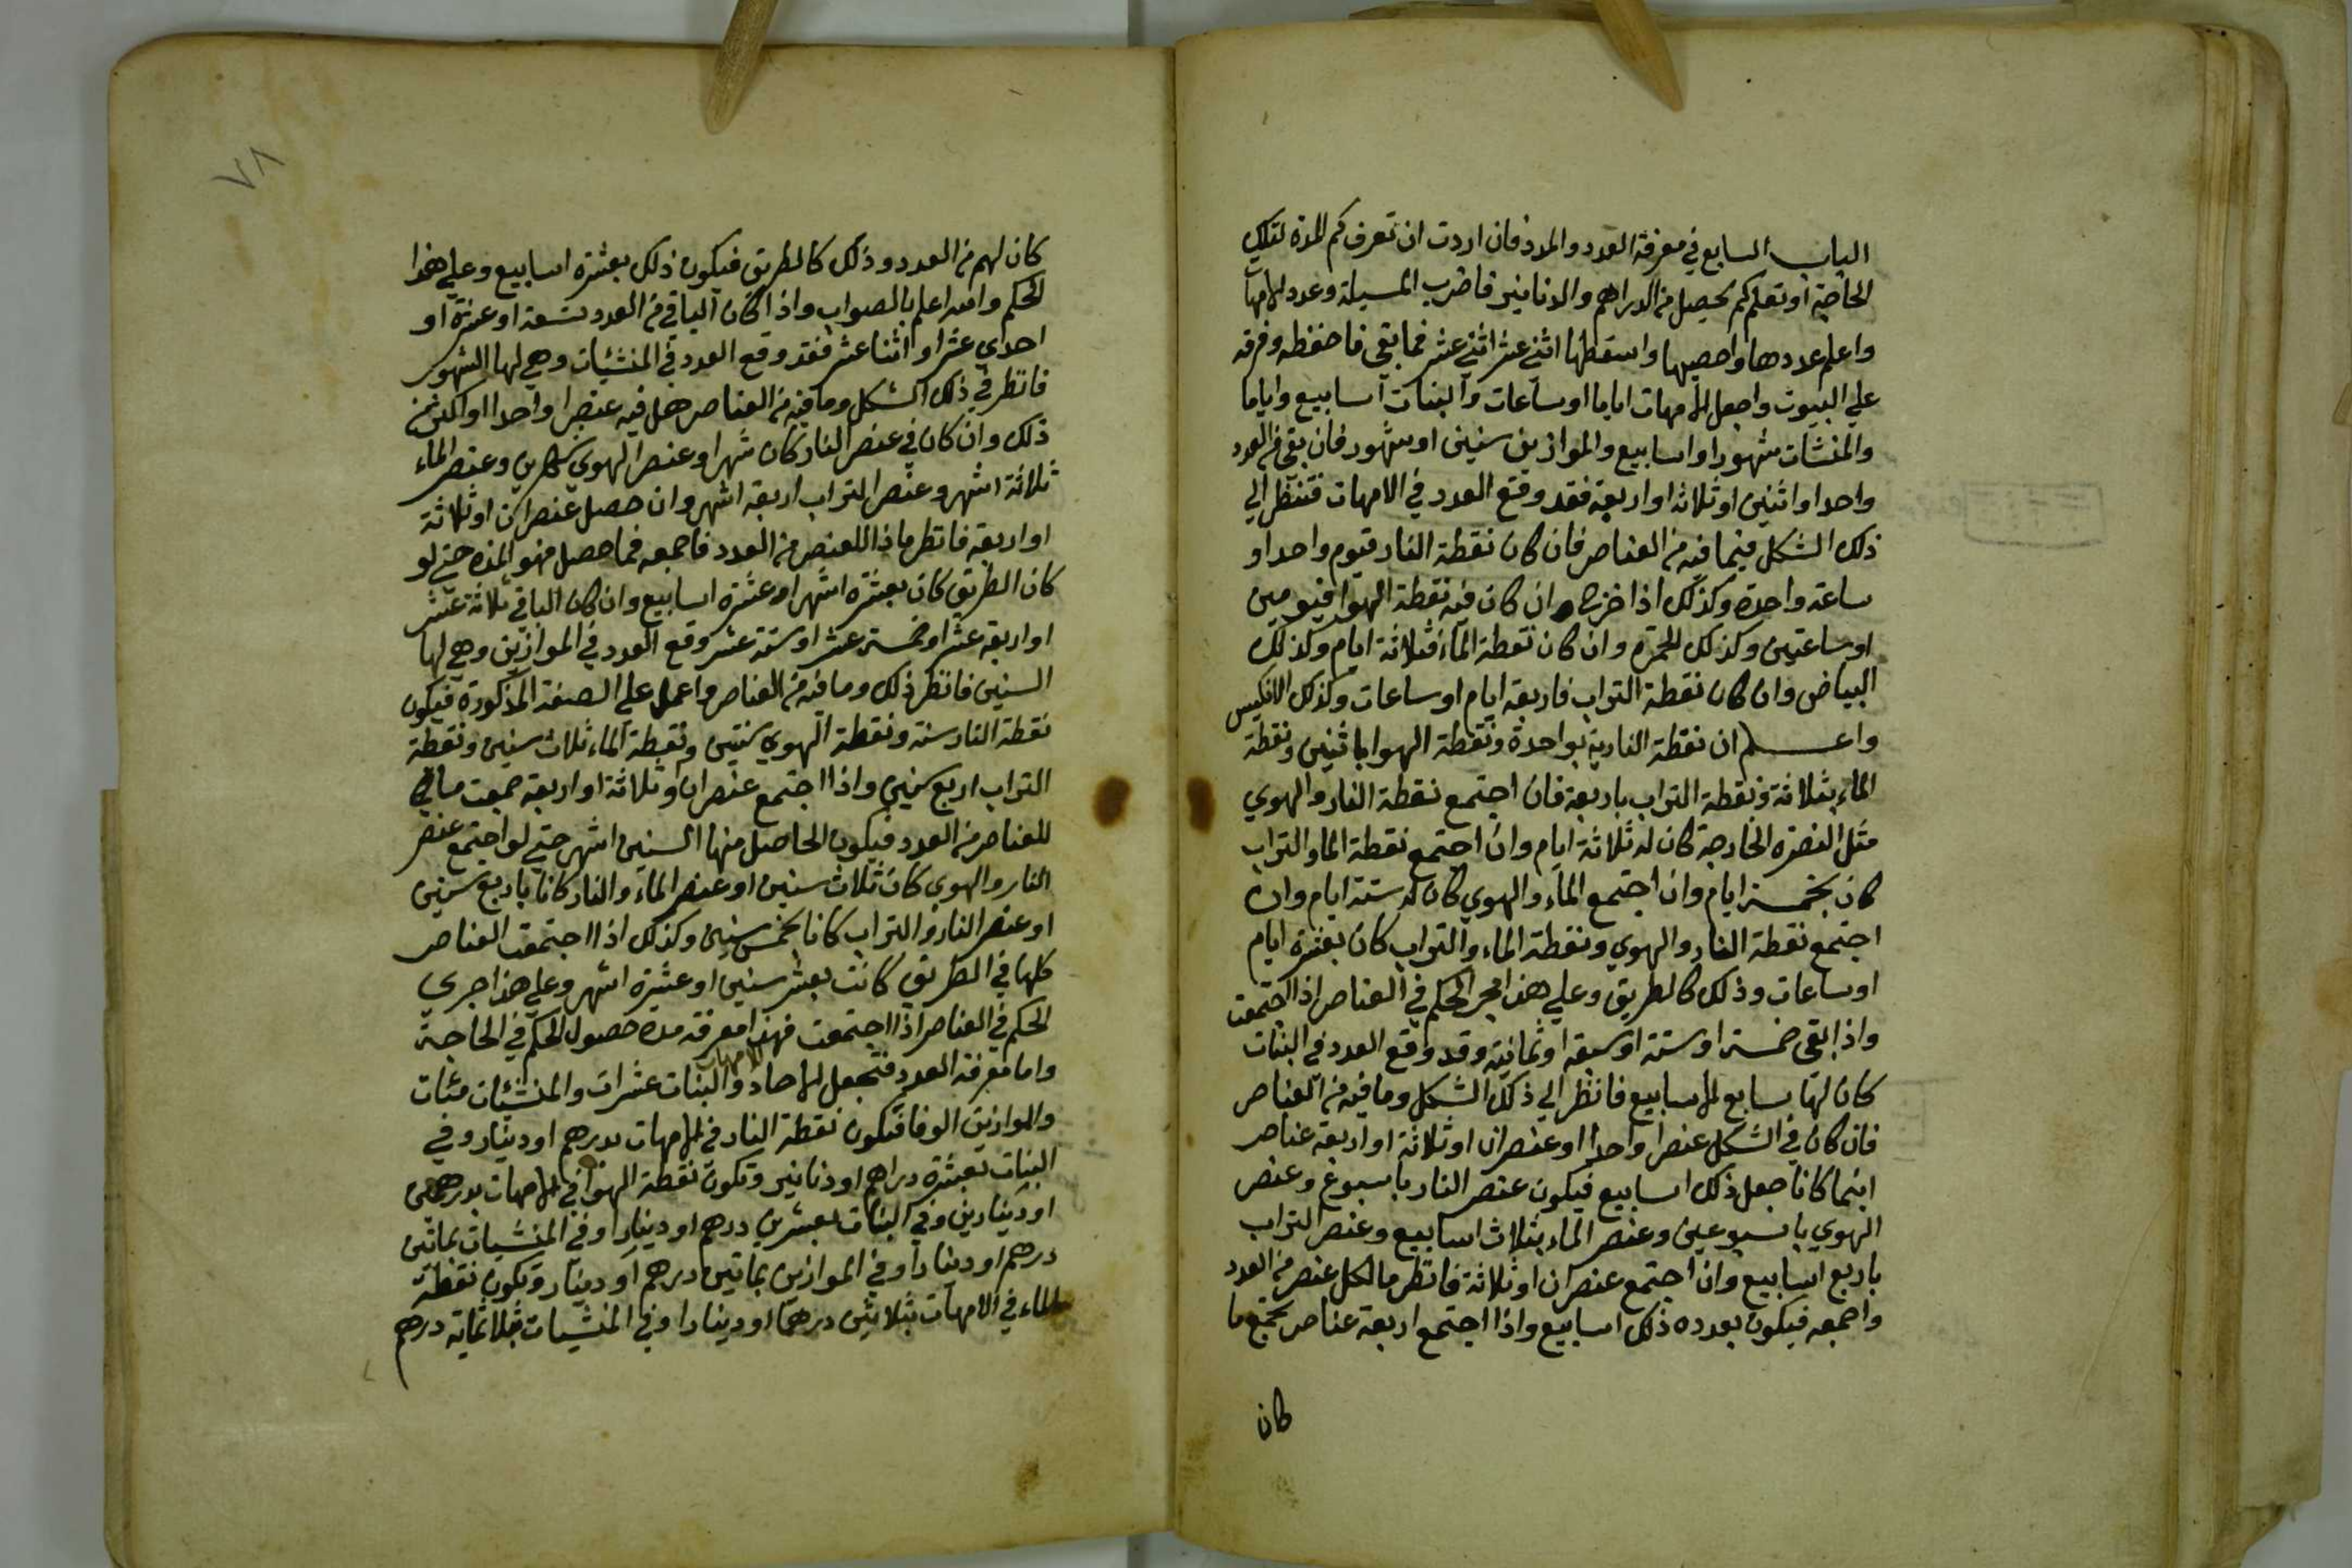 الباب السابع في معرفة العدد والمدد فان اردت ان تعرف كم المدة لتلك
الحاجة او تعلم كم يحصل من الدراهم والدنانير فاضرب المسيلة وعدد الامهات
واعلم عددها واحصيها واسقطها اثني عشر اثني عشر فما بقي فاحفظه وفرقه
علي البيوت واجعل الامهات اياما او ساعات والبنات اسابيع واياما
والمنشات شهورا او اسابيع والموازين سنين او شهور فان بقي من العدد
واحد او اثنين او ثلاثه او اربعة فقد وقع العدد في الامهات فتنظر الي
ذلك الشكل فيما فيه من العناصر فان كان نقطة النار فيوم واحد او
ساعة واحدة وكذلك اذا خرج وان كان فيه نقطة الهوا فيومين
او ساعتين وكذلك للحمرة وان كان نقطة الماء فثلاثة ايام وكذلك
البياض وان كان نقطة التراب فاربعة ايام او ساعات وكذلك الانكيس
واعلم ان نقطة النارية بواحدة ونقطة الهوا باثنين ونقطة
الماء بثلاثة ونقطة التراب باربعة فان اجتمع نقطة النار والهوي
مثل النصرة الخارجة كان له ثلاثة ايام وان اجتمع نقطة الما والتراب
كان بخمسة ايام وان اجتمع الماء والهوي كان له ستة ايام وان
اجتمع نقطة النار والهوي ونقطة الماء والتراب كان بعشرة ايام
او ساعات وذلك كالطريق وعلي هذا يجر الحكم في العناصر اذا اجتمعت
واذا بقي خمسة او ستة او سبعة او ثمانية وقد وقع العدد في البنات
كان لها سابع الاسابيع فانظر الي ذلك الشكل وما فيه من العناصر
فان كان في الشكل عنصرا واحدا او عنصران او ثلاثة او اربعة عناصر
اينما كانا جعل ذلك اسابيع فيكون عنصر النار باسبوع وعنصر
الهوي باسبوعين وعنصر الماء بثلاث اسابيع وعنصر التراب
باربع اسابيع وان اجتمع عنصران او ثلاثة فانظر ما لكل عنصر من العدد
واجمعه فيكون بعدده ذلك اسابيع واذا اجتمع اربعة عناصر يجمع ما
كان
٧٨
كان لهم من العدد وذلك كالطريق فيكون ذلك بعشرة اسابيع وعلي هذا
الحكم والله اعلم بالصواب واذا كان الباقي من العدد تسعة او عشرة او
احدي عشر او اثنا عشر فقد وقع العدد في المنشئات وهي لها الشهور
فانظر في ذلك الشكل وما فيه من العناصر هل فيه عنصرا واحدا او اكثر من
ذلك وان كان في عنصر النار كان شهرا وعنصر الهوي شهرين وعنصر الماء
ثلاثة اشهر وعنصر التراب اربعة اشهر وان حصل عنصران او ثلاثة
او اربعة فانظر ماذا للعنصر من العدد فاجمعه فما حصل فهو المدة حتي لو
كان الطريق كان بعشرة اشهر او عشرة اسابيع وان كان الباقي ثلاثة عشر
او اربعة عشر او خمسة عشر او ستة عشر وقع العدد في الموازين وهي لها
السنين فانظر ذلك وما فيه من العناصر واعمل علي الصفة المذكورة فيكون
نقطة النار سنة ونقطة الهوي سنتين ونقطة الماء ثلاث سنين ونقطة
التراب اربع سنين واذا اجتمع عنصران او ثلاثة او اربعة جمعت ما في
للعناصر من العدد فيكون الحاصل منها السنين اشهر حتي لو اجتمع عنصر
النار والهوي كان ثلاث سنين او عنصر الماء والنار كانا باربع سنين
او عنصر النار والتراب كانا بخمس سنين وكذلك اذا اجتمعت العناصر
كلها في الطريق كانت بعشر سنين او عشرة اشهر وعلي هذا جري
الحكم في العناصر اذا اجتمعت فهذا معرفة مدة حصول الحكم في الحاجة
واما معرفة العدد فتجعل الاحاد الامهات والبنات عشرات والمنشئات مئات
والموازين الوفا فتكون نقطة النار في الامهات بدرهم او دينار وفي
البنات بعشرة دراهم او دنانير وتكون نقطة الهوا في الامهات بدرهمين
او دينارين وفي البنات بعشرين درهم او دينارا وفي المنشيات بماتين
درهم او دينارا وفي الموازين بماتين درهم او دينار وتكون نقطة
الماء في الامهات بثلاثين درهما او دينارا وفي المنشيات بثلاثماية درهم